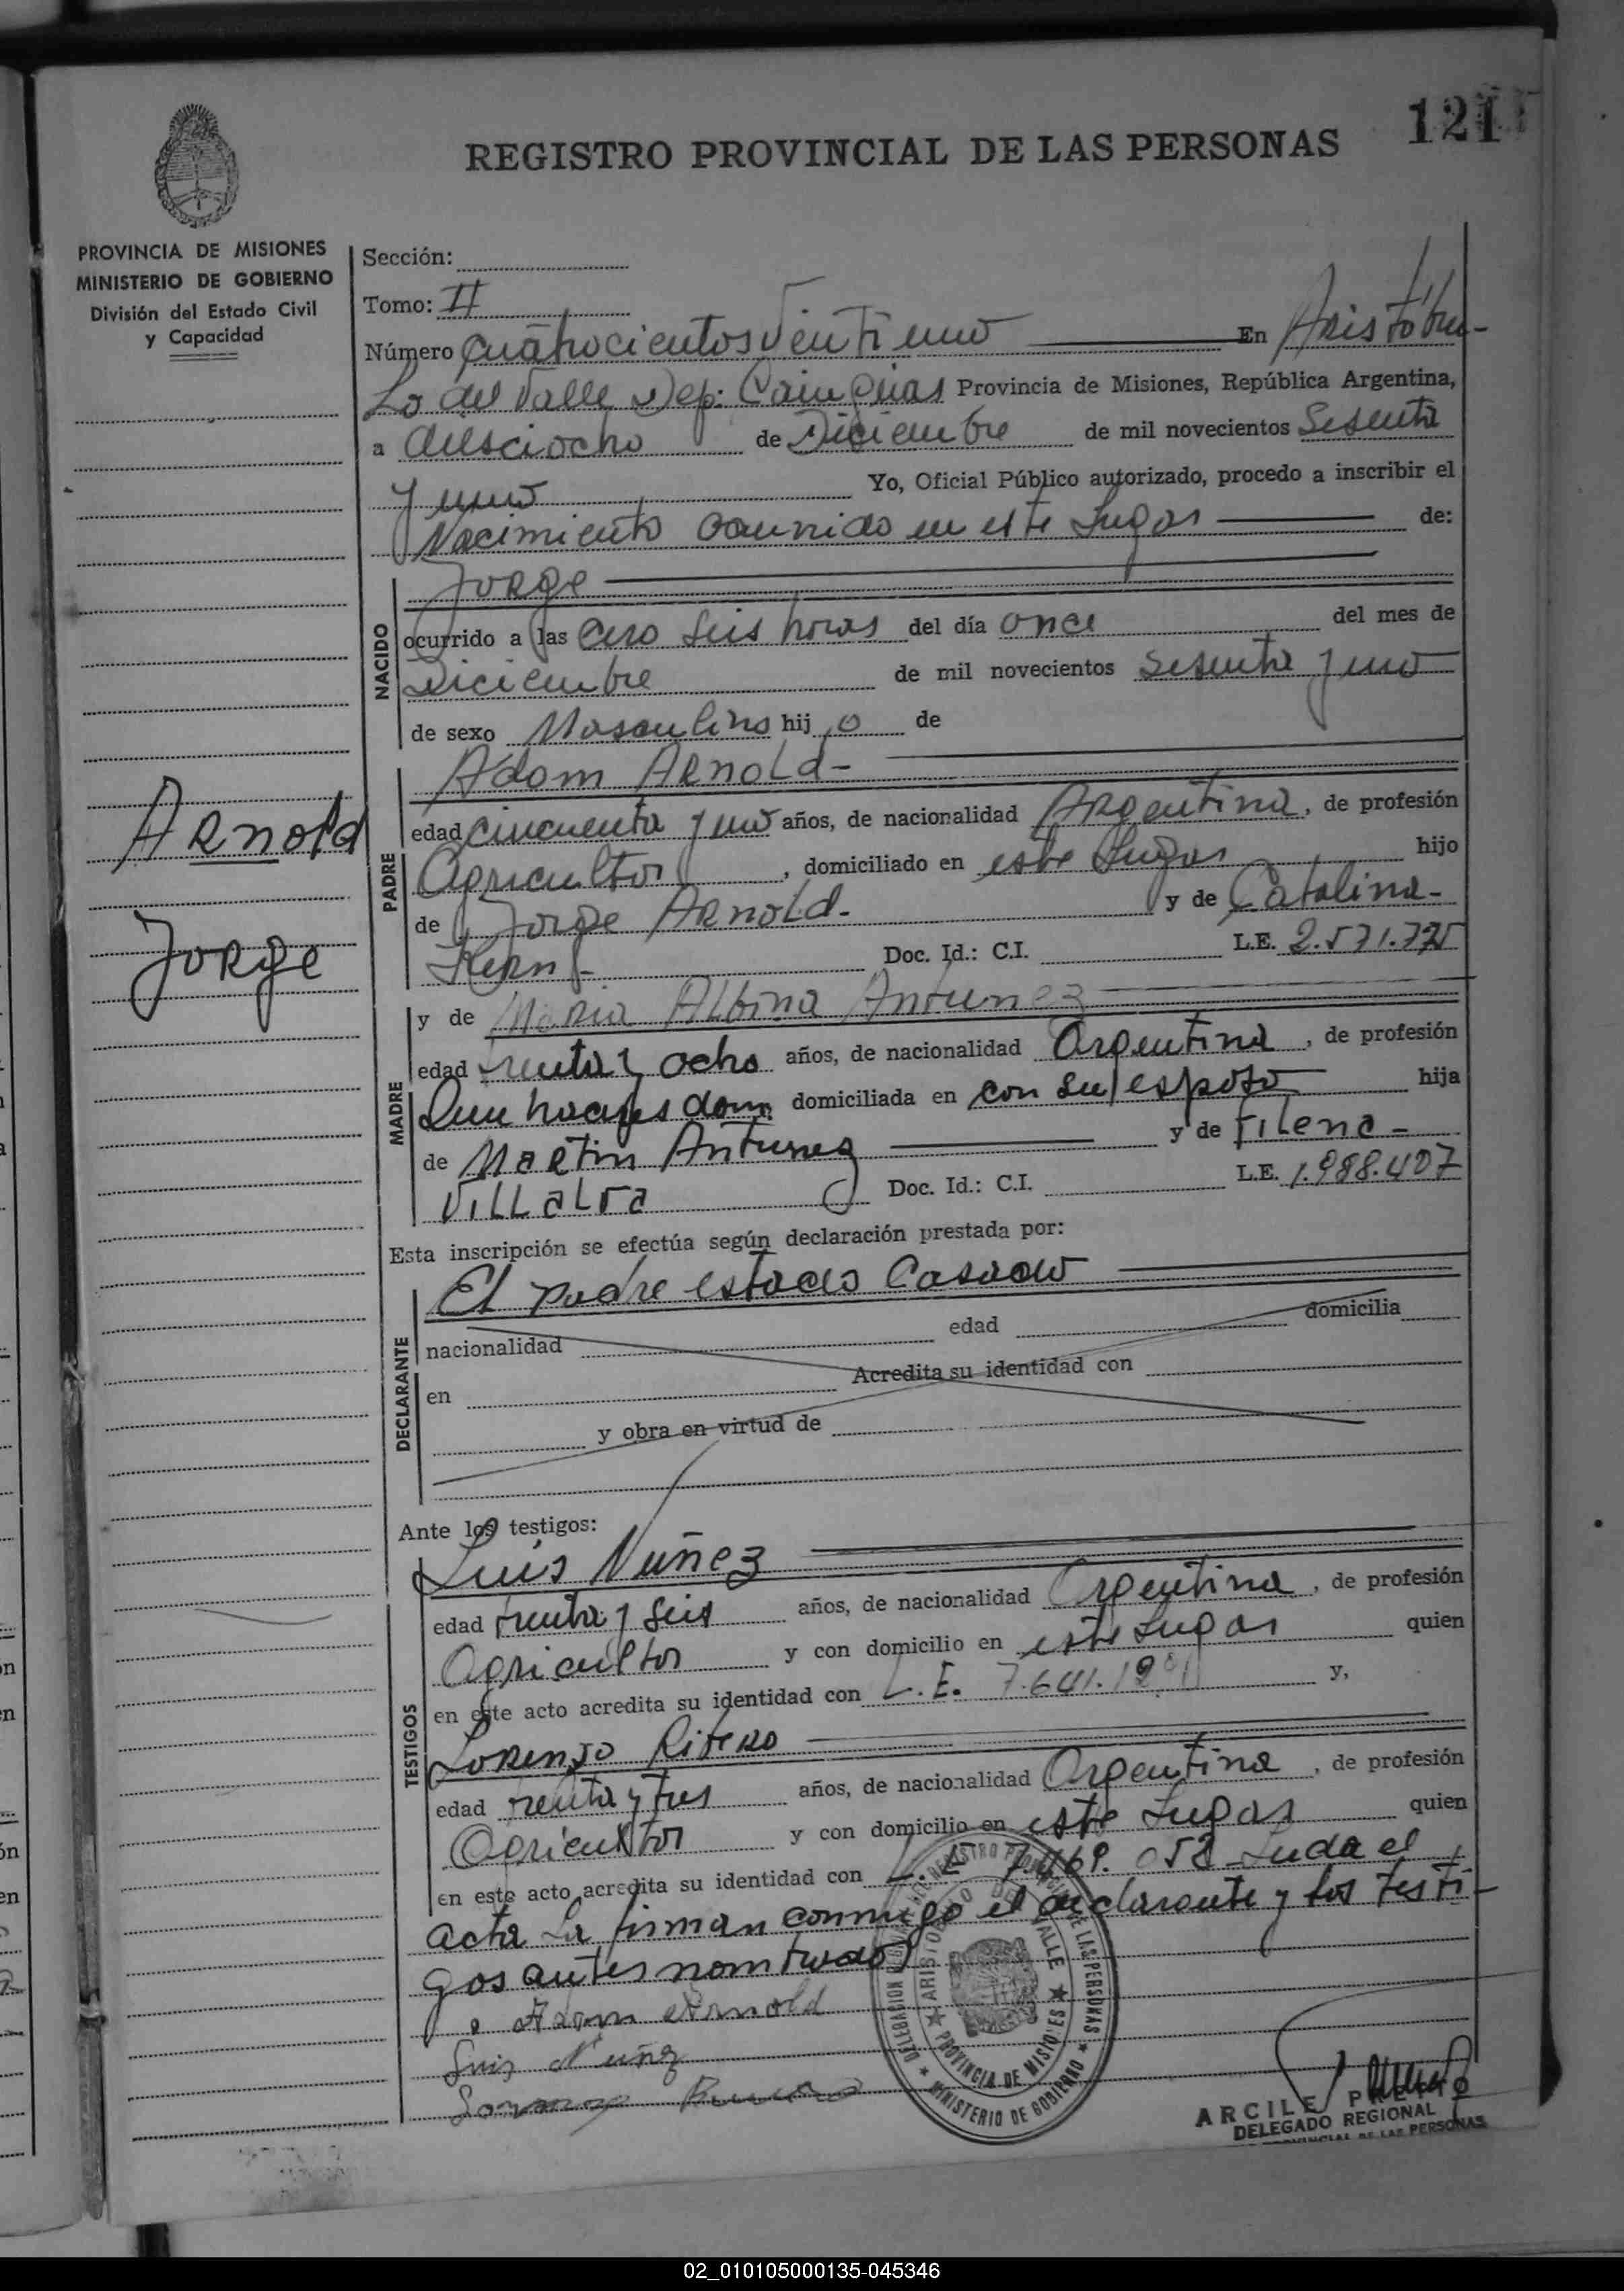 121
REGISTRO PROVINCIAL DE LAS PERSONAS
PROVINCIA DE MISIONES
MINISTERIO DE GOBIERNO
División del Estado Civil
y Capacidad
Sección:
Tomo: II
Número Cuatrocientos Veintiuno En Aristóbu-
Lo del Valle Dep: Cainguas Provincia de Misiones, República Argentina,
a diesciocho de Diciembre de mil novecientos Sesenta
y uno Yo, Oficial Público autorizado, procedo a inscribir el
Nacimiento ocurrido en este Lugar de:
NACIDO
Jorge
ocurrido a las cero seis horas del día once del mes de
Diciembre de mil novecientos sesenta y uno
de sexo Masculino hij o de
Arnold
Jorge
PADRE
Adam Arnold-
edad cincuenta y uno años, de nacionalidad Argentina, de profesión
Agricultor, domiciliado en este Lugar hijo
de Jorge Arnold- y de Catalina-
Kern- Doc. Id.: C.I. L.E. 2.571.775
MADRE
y de Maria Albina Antunez
edad treinta y ocho años, de nacionalidad Argentina, de profesión
Que haceres dom. domiciliada en con su esposo hija
de Martin Antunez y de Filena-
Villalva Doc. Id.: C.I. L.E. 1.988.407
Esta inscripción se efectúa según declaración prestada por:
DECLARANTE
El padre estado Casado
nacionalidad edad domicilia
en Acredita su identidad con
y obra en virtud de
Ante los testigos:
TESTIGOS
Luis Nuñez
edad treinta y seis años, de nacionalidad Argentina, de profesión
Agricultor y con domicilio en este Lugar quien
en este acto acredita su identidad con L.E. y,
Lorenzo Rivero
edad treinta y tres años, de nacionalidad Argentina, de profesión
Agricultor y con domicilio en este Lugar quien
en este acto acredita su identidad con L.E. 058 Leida el
acta La firman conmigo el declarante y los testi-
gos antes nombrados
Adam Arnold
Luis Nuñez
DELEGACION REGIONAL DE REGISTRO PROVINCIAL DE LAS PERSONAS
ARISTOBULO DEL VALLE
PROVINCIA DE MISIONES
MINISTERIO DE GOBIERNO
ARCILE PRETTO
DELEGADO REGIONAL
PROVINCIAL DE LAS PERSONAS
02_010105000135-045346